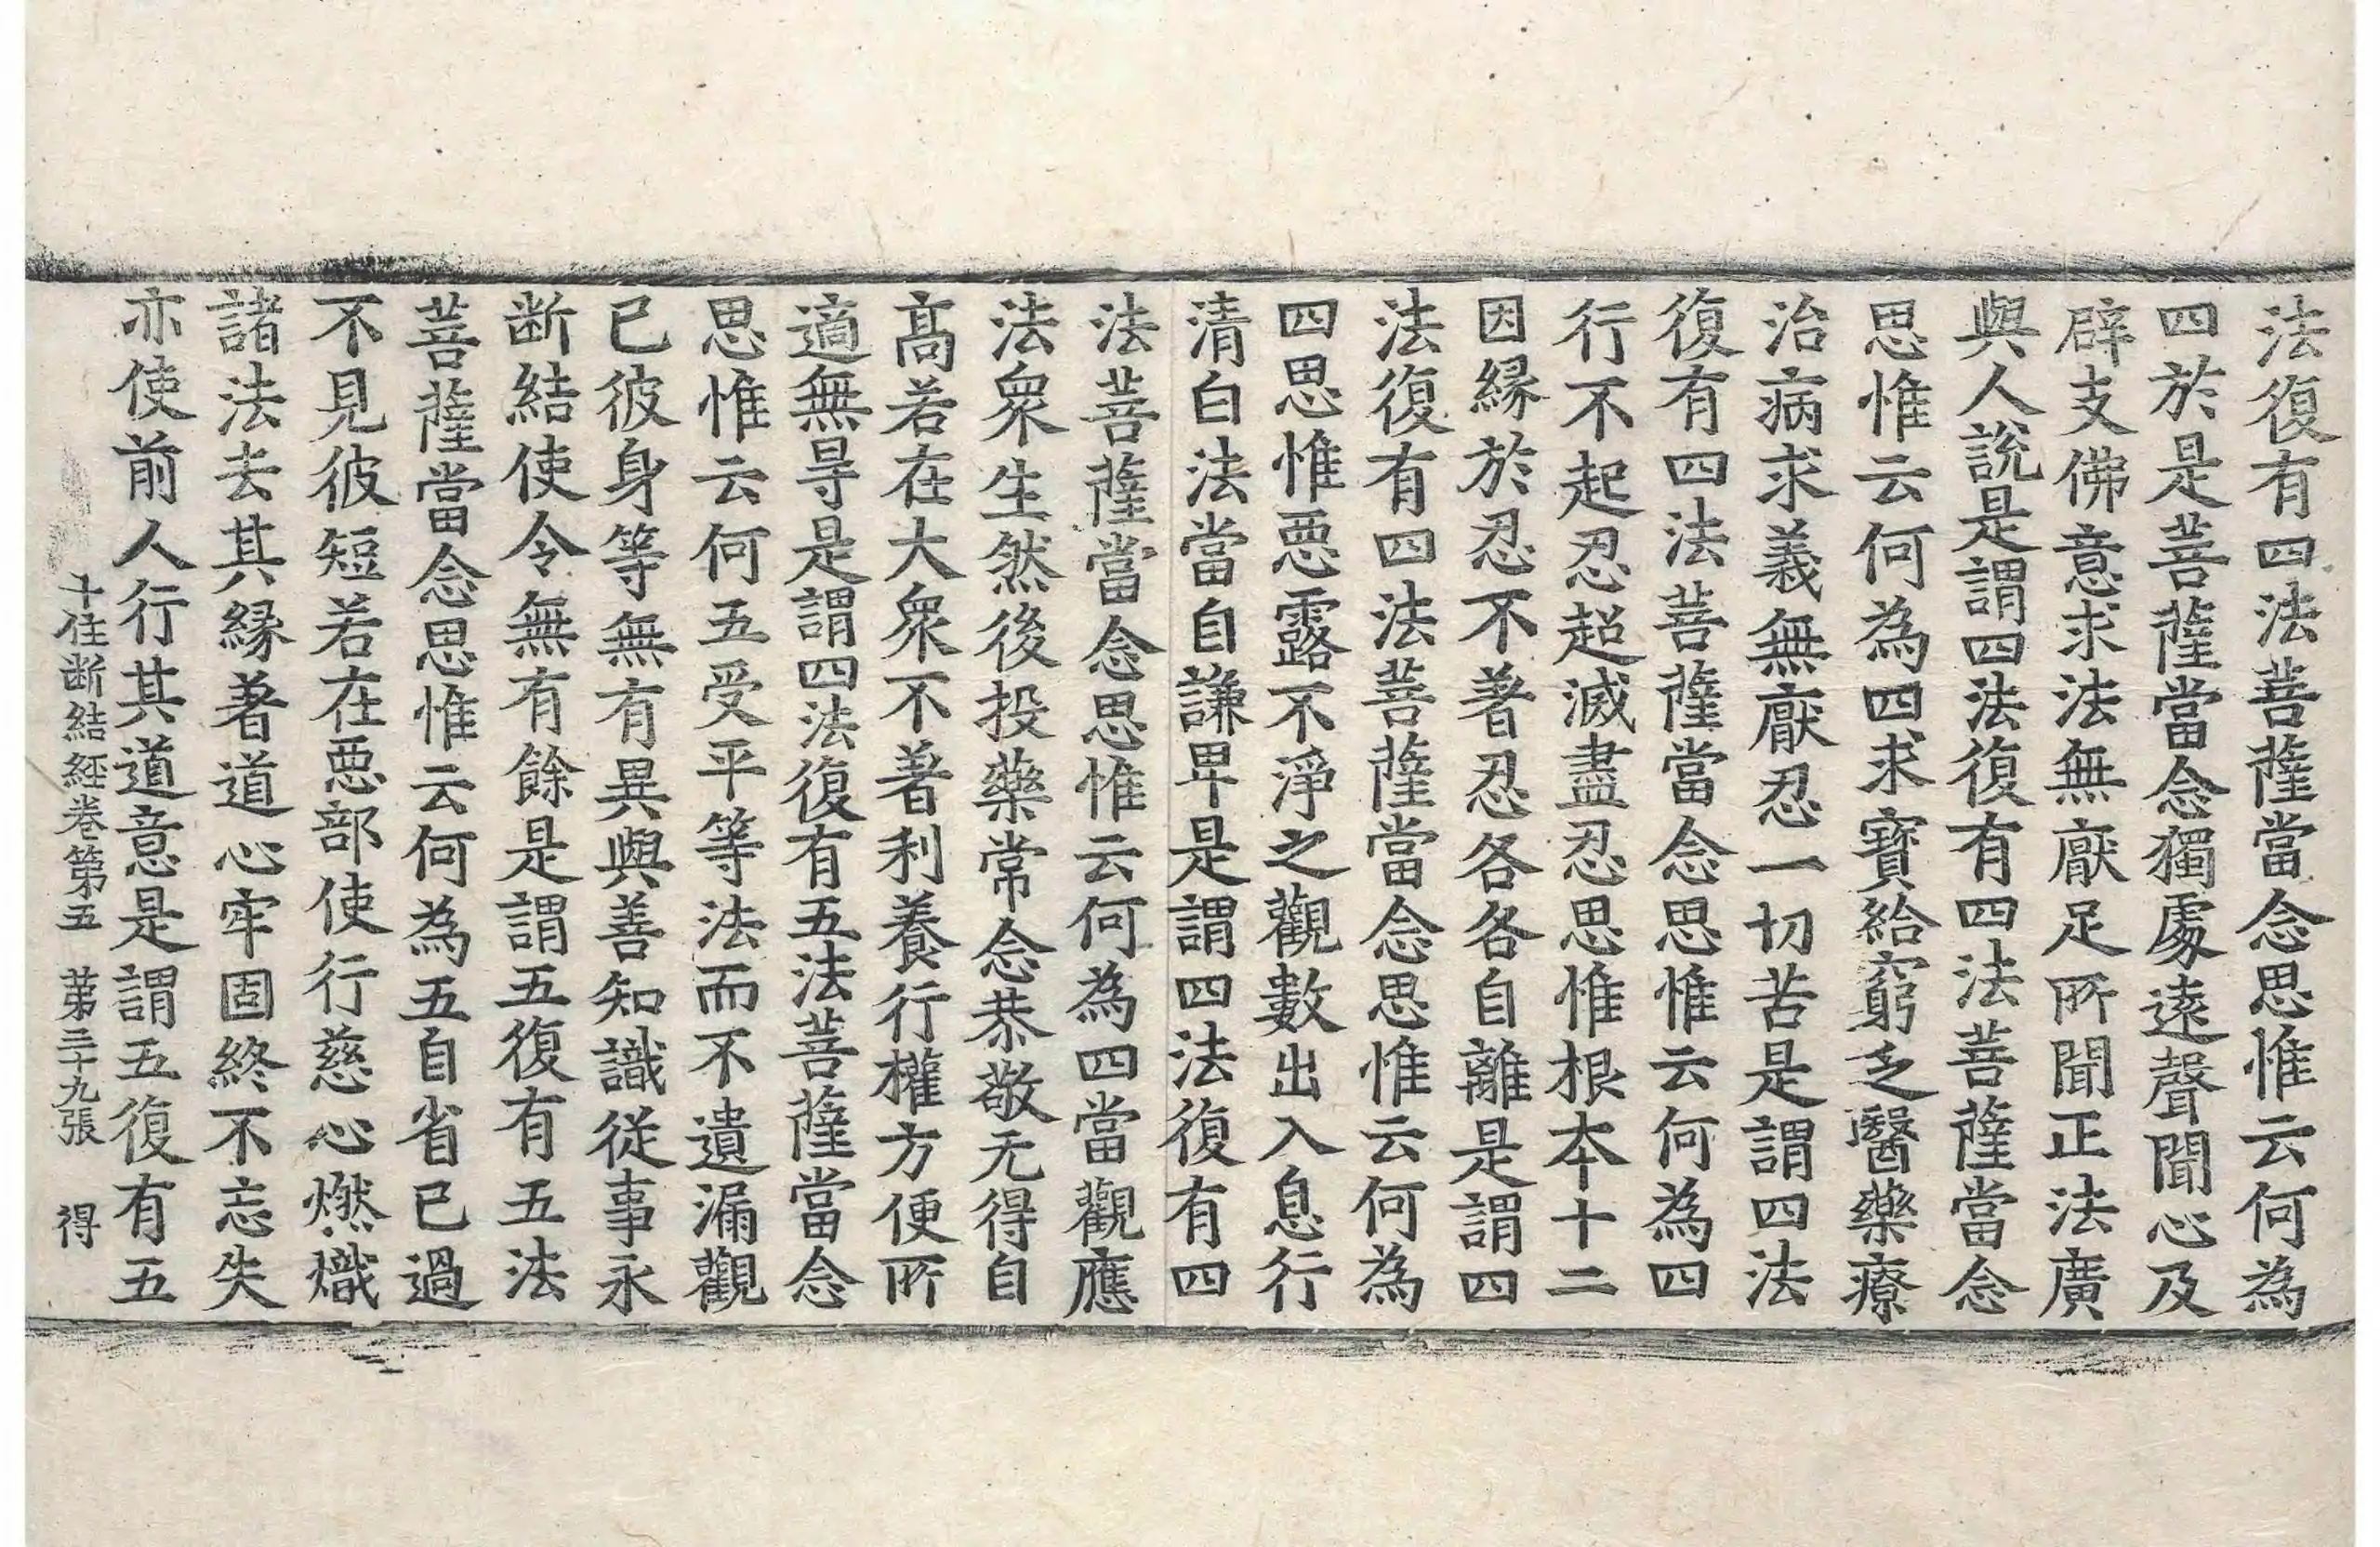 法復有四法菩薩當念思惟云何為
四於是菩薩當念獨處遠聲聞心及
辟支佛意求法無猒足所聞正法廣
與人說是謂四法復有四法菩薩當念
思惟云何為四求寶給窮乏醫藥療
治病求義無猒忍一切苦是謂四法
復有四法菩薩當念思惟云何為四
行不起忍超滅盡忍思惟根本十二
因緣於忍不著忍各各自離是謂四
法復有四法菩薩當念思惟云何為
四思惟惡露不淨之觀數出入息行
清白法當自謙卑是謂四法復有四
法菩薩當念思惟云何為四當觀應
法衆生然後投藥常念恭敬无得自
髙若在大衆不著利養行權方便所
適無㝵是謂四法復有五法菩薩當念
思惟云何五受平等法而不遺漏觀
已彼身等無有異與善知識從事永
断結使令無有餘是謂五復有五法
菩薩當念思惟云何為五自省已過
不見彼短若在惡部使行慈心燃熾
諸法去其緣著道心牢固終不忘失
亦使前人行其道意是謂五復有五
十住断結經卷第五 苐三十九張 得